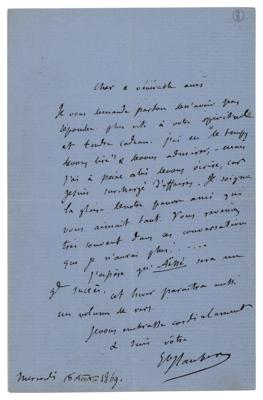 Cher & vénérable ami
Je vous demande pardon de n'avoir pas
répondu plus vite à votre spirituel
et tendre cadeau. J'ai eu le temps
de vous lire & de vous admirer, – mais
j'ai à peine celui de vous écrire, car
je suis surchargé d'affaires. Je soigne
la gloire de notre pauvre ami qui
vous aimait tant. Vous reveniez
très souvent dans ces conversations
que je n'aurai plus.....
J'espère qu'Aïssé sera un
gd succès, cet hiver paraîtra aussi
un volume de vers.
Je vous embrasse cordialement
& suis vôtre
Gve Flaubert
Mercredi 18 Août 1869.